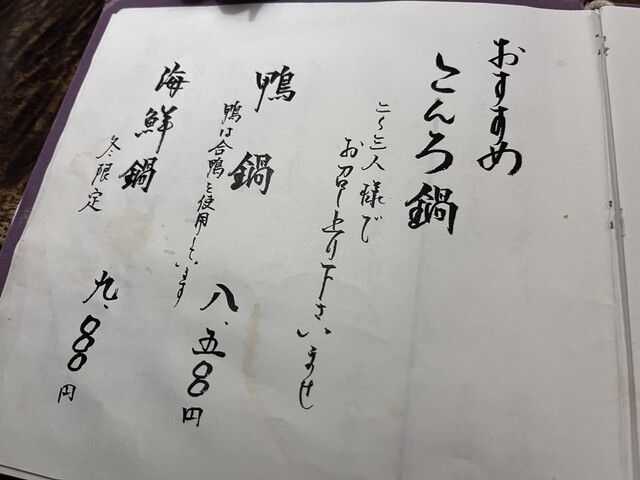 おすすめ
とんろ鍋
三人様で
お召し上り下さいませ
鴨鍋 八、五〇〇円
鴨は合鴨を使用しています
海鮮鍋 九、〇〇〇円
冬限定